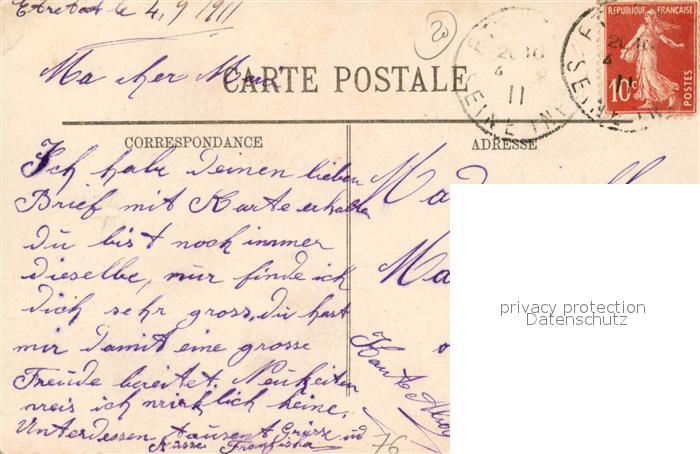 Etretat le 4, 9 1911
Ma cher
CARTE POSTALE
RÉPUBLIQUE FRANÇAISE
10c
POSTES
4
11
SEINE INF
CORRESPONDANCE
ADRESSE
Ich habe Deinen lieben
Brief mit Karte erhalten
du bist noch immer
dieselbe, nur finde ich
dich sehr gross, du hast
mir damit eine grosse
Freude bereitet. Neuheiten
weis ich wirklich keine.
Unterdessen tausent Grüsse und
Küsse Franziska
Ma
Haute
76
privacy protection
Datenschutz